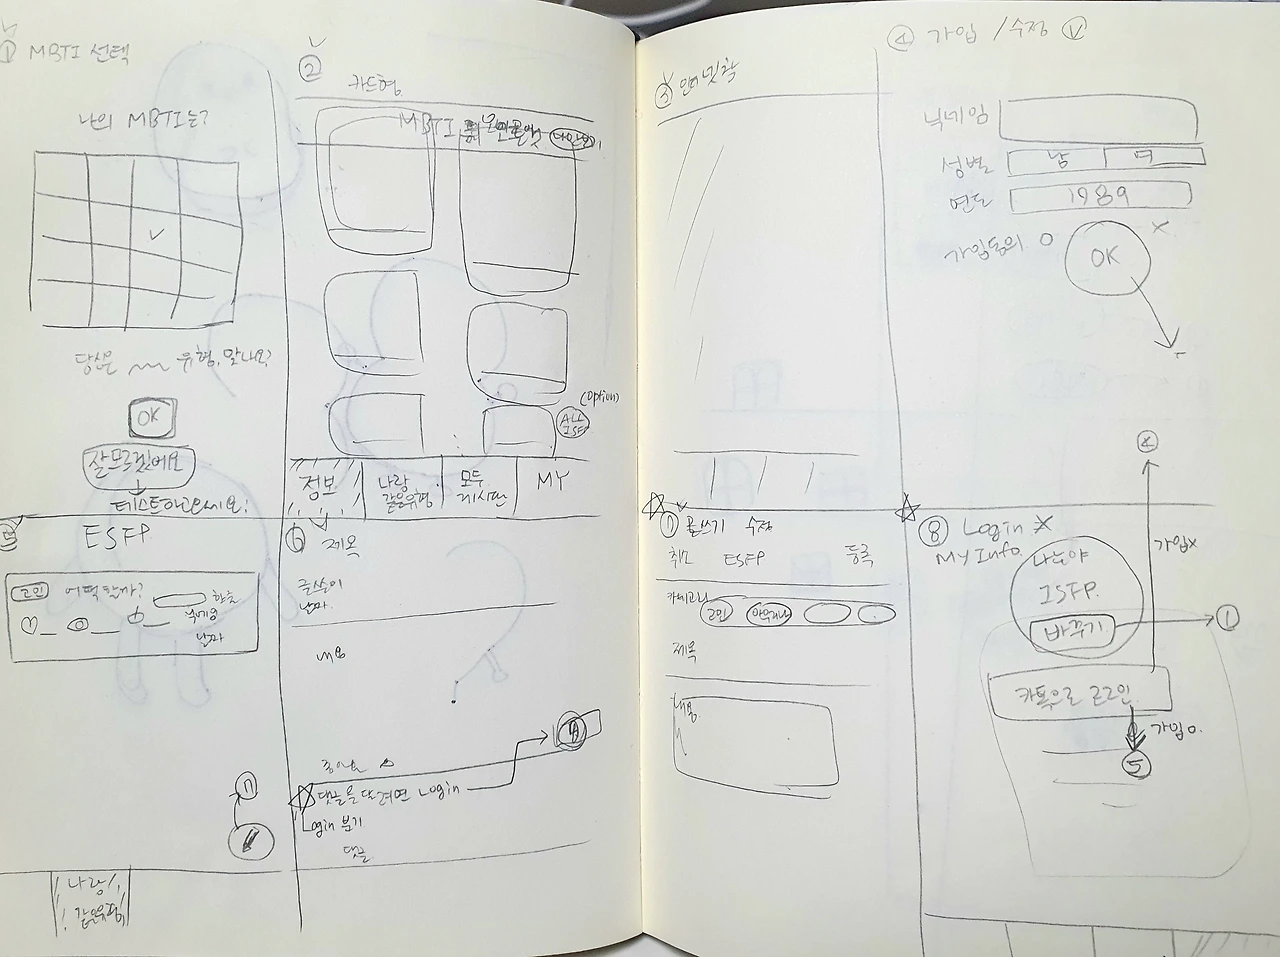 ① MBTI 선택
나의 MBTI는?
당신은 유형, 맞나요?
OK
잘모르겠어요
테스트하고오세요!
②
카드형
MBTI
(option)
ALL
ISFP
정보
나랑
같은유형
모두
게시판
MY
③
④ 가입 / 수정 Ⓥ
닉네임
성별 남 여
연도 1989
가입동의 O
OK
X
⑤ ESFP
고민 어떡할까?
닉네임
날짜
⑦
나랑
같은유형
⑥ 제목
글쓴이
날짜
내용
좋아요
댓글을 달려면 Login
④
Login 분기
댓글
⑦ 글쓰기 수정
취소 ESFP 등록
카테고리
고민
제목
내용
⑧ Login X
My Info.
나는야
ISFP.
바꾸기
①
④
가입X
카톡으로 로그인
가입O.
⑤